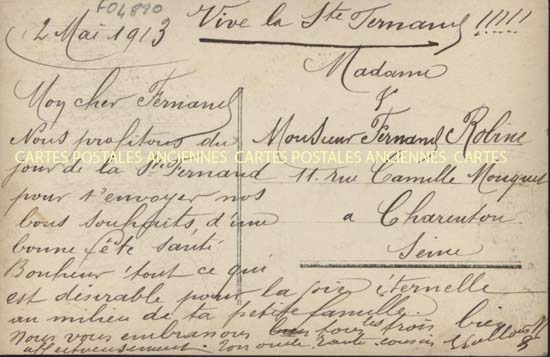 F04820
Vive la Ste Fernand !!!!!
2 Mai 1913
Madame
&
Monsieur Fernand Robine
11 rue Camille Mouquet
a Charenton
Seine
Mon cher Fernand
Nous profitons du
jour de la St Fernand
pour t'envoyer nos
bons souhaits, d'une
bonne fête santé
Bonheur tout ce qui
est désirable pour la joie éternelle
au milieu de ta petite famille.
Nous vous embrassons tous les trois bien
affectueusement. Ton oncle tante cousins
CARTES POSTALES ANCIENNES CARTES POSTALES ANCIENNES CARTES POSTALES ANCIENNES